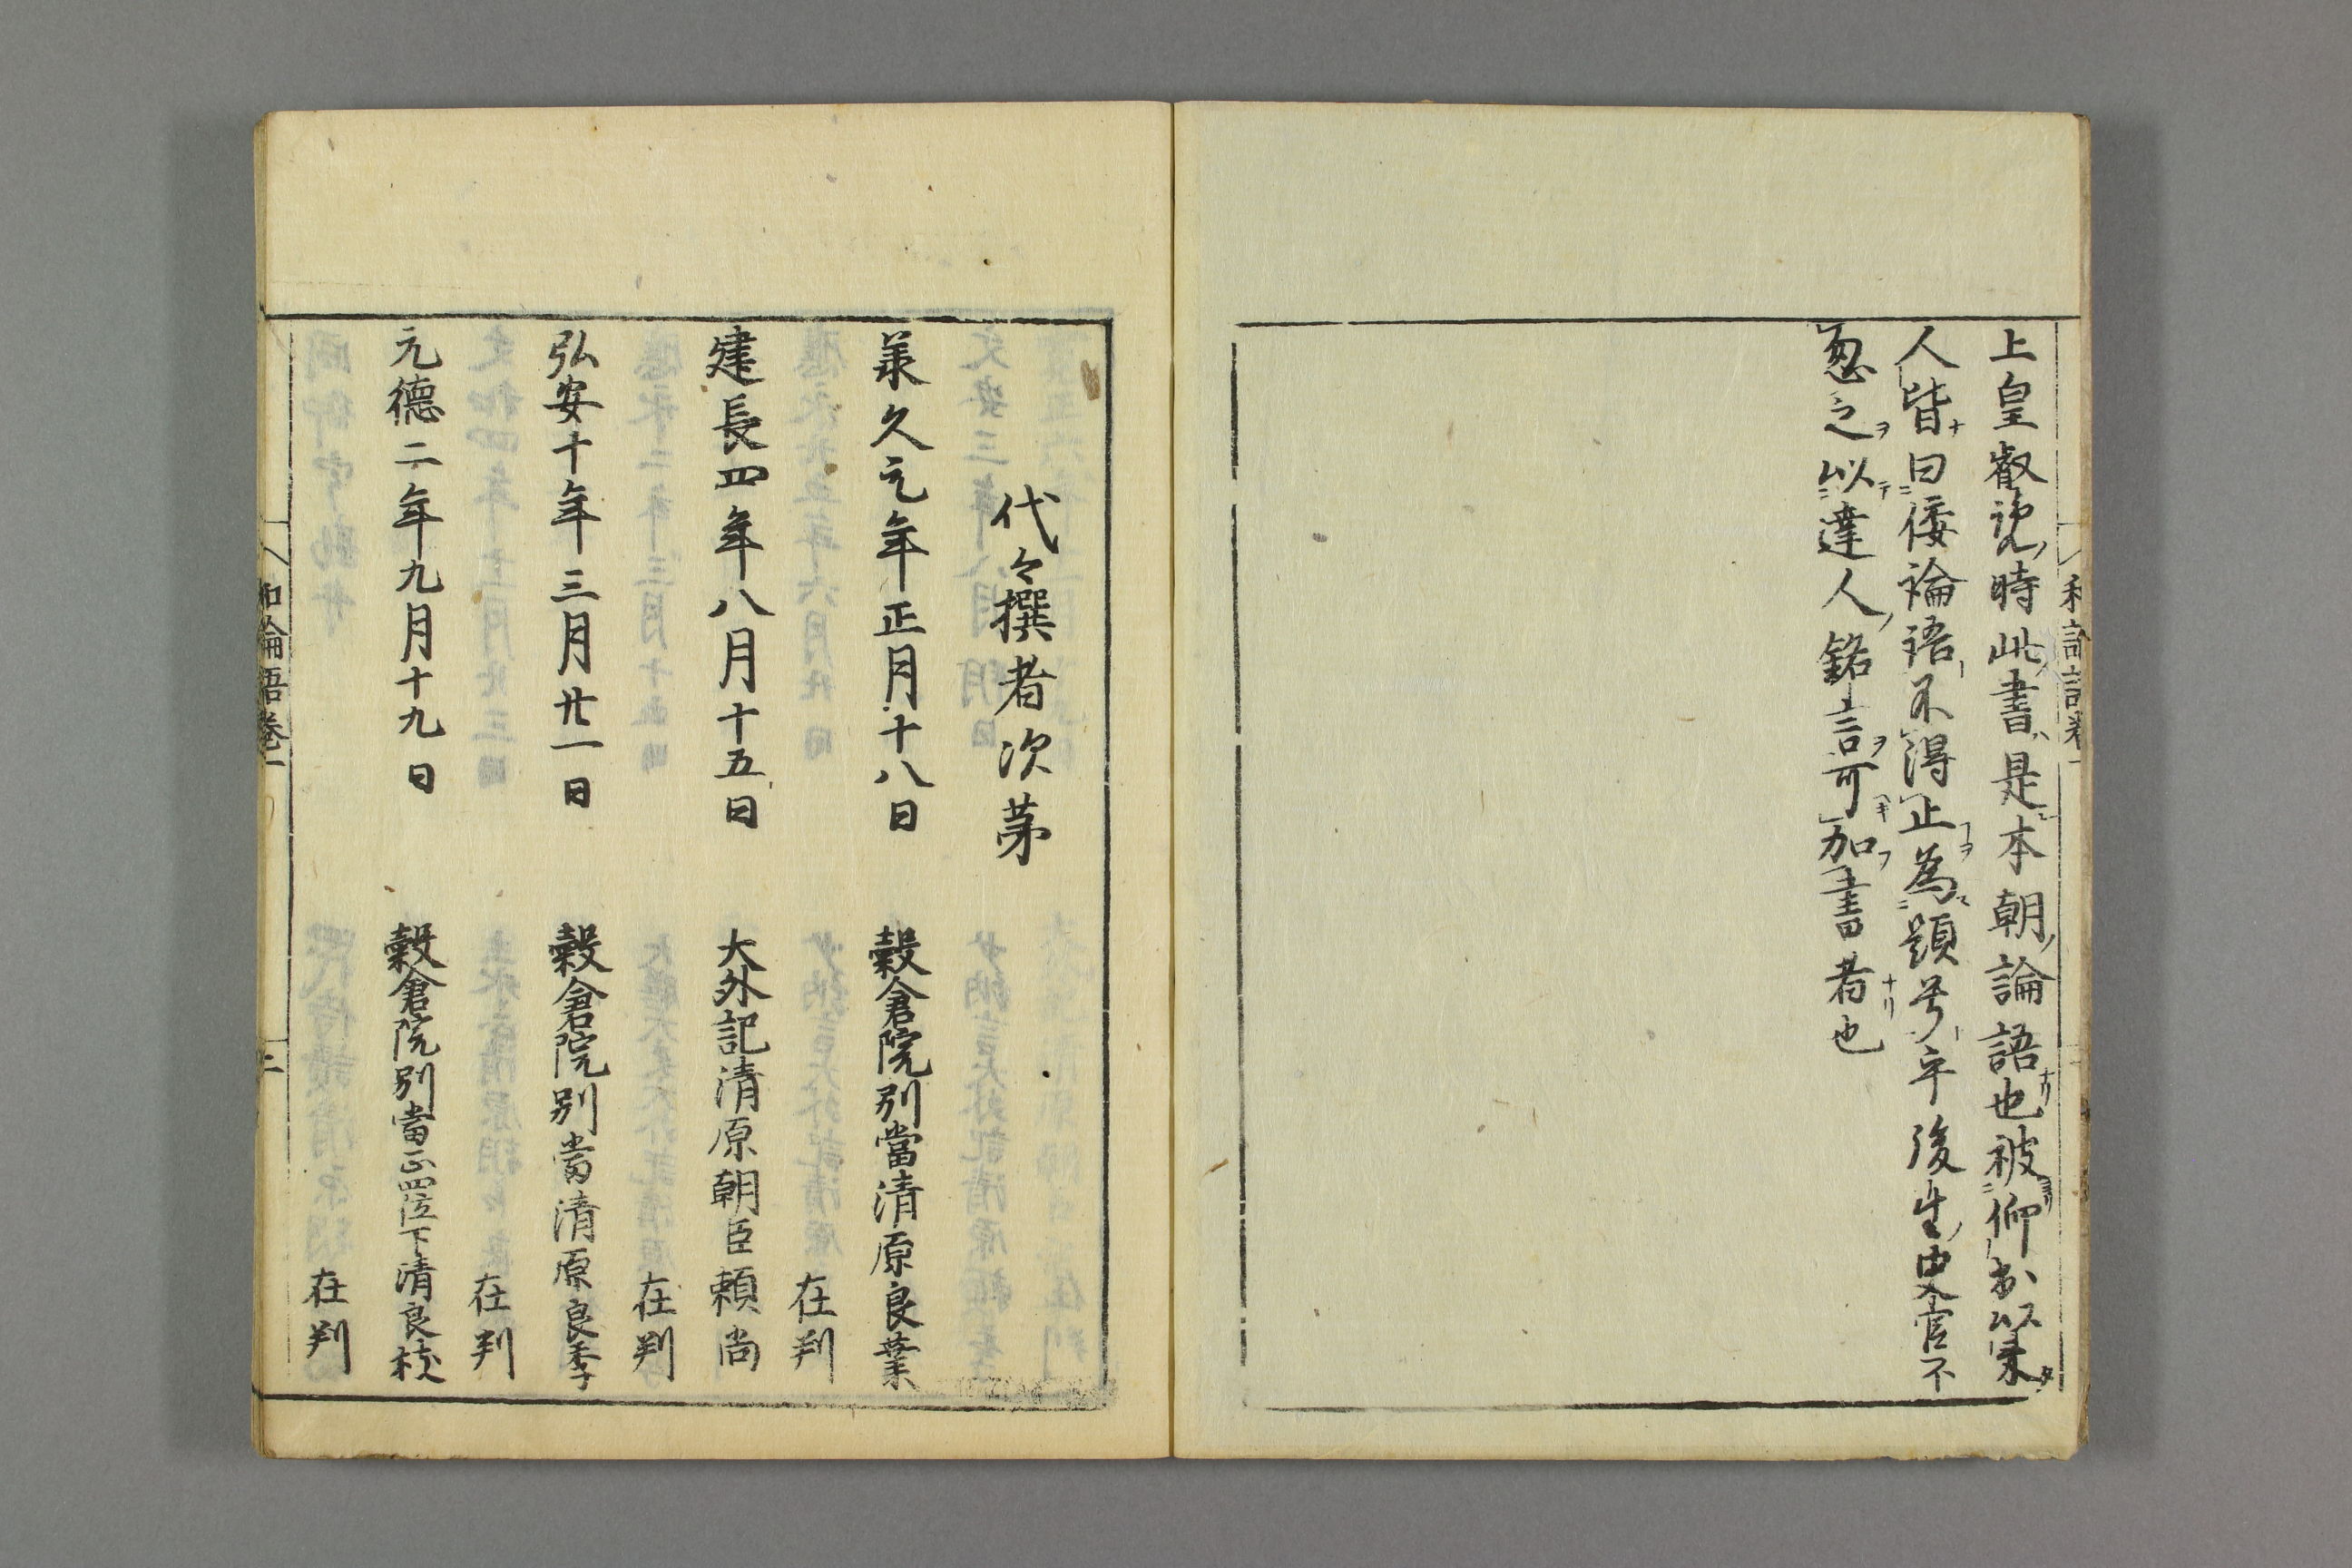 上皇叡覽時此書是本朝論語也被仰於以來
人皆曰倭論語不得止為題号乎後生史官不
忽之以達人銘言可加書者也
和論語卷一
代々撰者次第
兼久元年正月十八日 穀倉院別當清原良業
在判
建長四年八月十五日 大外記清原朝臣頼尚
在判
弘安十年三月廿一日 穀倉院別當清原良季
在判
元德二年九月十九日 穀倉院別當正四位下清良枝
在判
和論語卷一 二